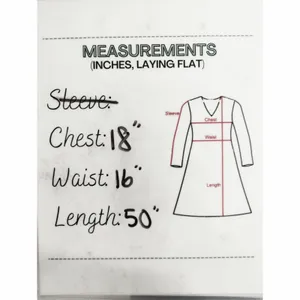 MEASUREMENTS
(INCHES, LAYING FLAT)
Sleeve:
Chest: 18"
Waist: 16"
Length: 50"
Sleeve
Chest
Waist
Length